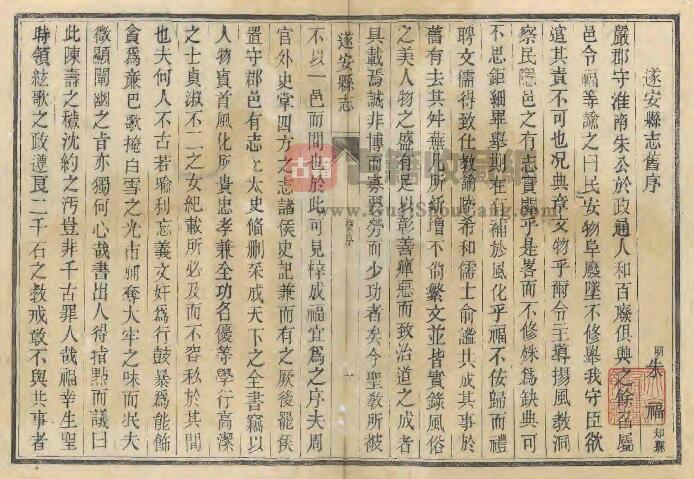 遂安縣志舊序
明 朱福 知縣
嚴郡守淮南朱公於政通人和百廢俱興之餘召屬
邑令福等諭之曰民安物阜廢墜不修舉我守臣欲
逭其責不可也況典章文物乎爾令主導揚風教洞
察民隱邑之有志實關乎是畧而不修殊為缺典可
不思鉅細畢舉期在有補於風化乎福不佞歸而禮
聘文儒得致仕教諭 希和儒士俞謐共成其事於
舊有去其舛蕪凡所新增不尚繁文並皆實錄風俗
之美人物之盛有足以彰善癉惡而致治道之成者
具載焉誠非博而寡要勞而少功者矣今聖敎所被
遂安縣志
舊序
一
不以一邑而間也於此可見梓成福宜為之序夫周
官外史掌四方之志諸侯史記兼而有之厥後罷侯
置守郡邑有志上太史脩刪采成天下之全書竊以
人物實首風化所貴忠孝兼全功名優等學行高潔
之士貞淑不二之女紀載所必及而不容私於其間
也夫何人不古若喻利忘義文奸為行鼓暴為能飾
貪為亷巴歌掩白雪之光 奪大牢之味而泯夫
微顯闡幽之旨亦獨何心哉書出人得指點而議曰
此陳壽之穢沈約之汚豈非千古罪人哉福幸生聖
時領絃歌之政遵良二千石之教戒敢不與共事者
古籍
古籍收藏網
www.GujiShouCang.com